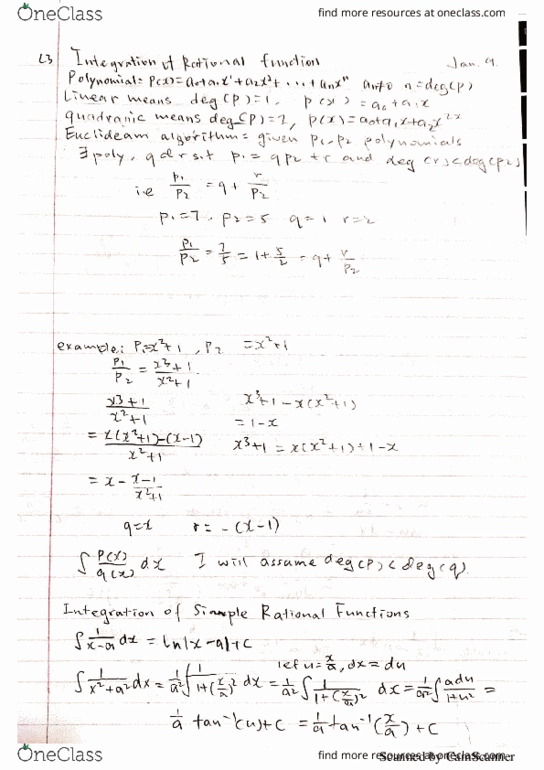 OneClass
find more resources at oneclass.com
L3 Integration of Rational function Jan. 9.
Polynomial: P(x)=a₀+a₁x¹+a₂x²+...+aₙxⁿ aₙ≠0 n=deg(p)
Linear means deg(p)=1, p(x)=a₀+a₁x
quadranic means deg(p)=2, p(x)=a₀+a₁x+a₂x²
Euclideam algorithm= given p₁,p₂ polynomials
∃ poly, q & r s.t p₁=qp₂+r and deg(r)<deg(p₂)
i.e p₁/p₂ = q + r/p₂
p₁=7, p₂=5 q=1 r=2
p₁/p₂ = 7/5 = 1+5/2 = q+ r/p₂
example: P₁=x³+1, P₂ =x²+1
P₁/P₂ = x³+1/x²+1
x³+1/x²+1 x³+1-x(x²+1)
= x(x²+1)-(x-1)/x²+1 =1-x
x³+1=x(x²+1)+1-x
= x - x-1/x²+1
q=x r=-(x-1)
∫ P(x)/q(x) dx I will assume deg(p)<deg(q).
Integration of Simple Rational Functions
∫ 1/x-a dx = ln|x-a|+c
let u=x/a, dx=du
∫ 1/x²+a² dx = 1/a² ∫ 1/1+(x/a)² dx = 1/a² ∫ 1/1+(x/a)² dx = 1/a² ∫ adu/1+u² =
1/a tan⁻¹(u)+c = 1/a tan⁻¹(x/a)+c
OneClass
find more resources at oneclass.com
Scanned by CamScanner